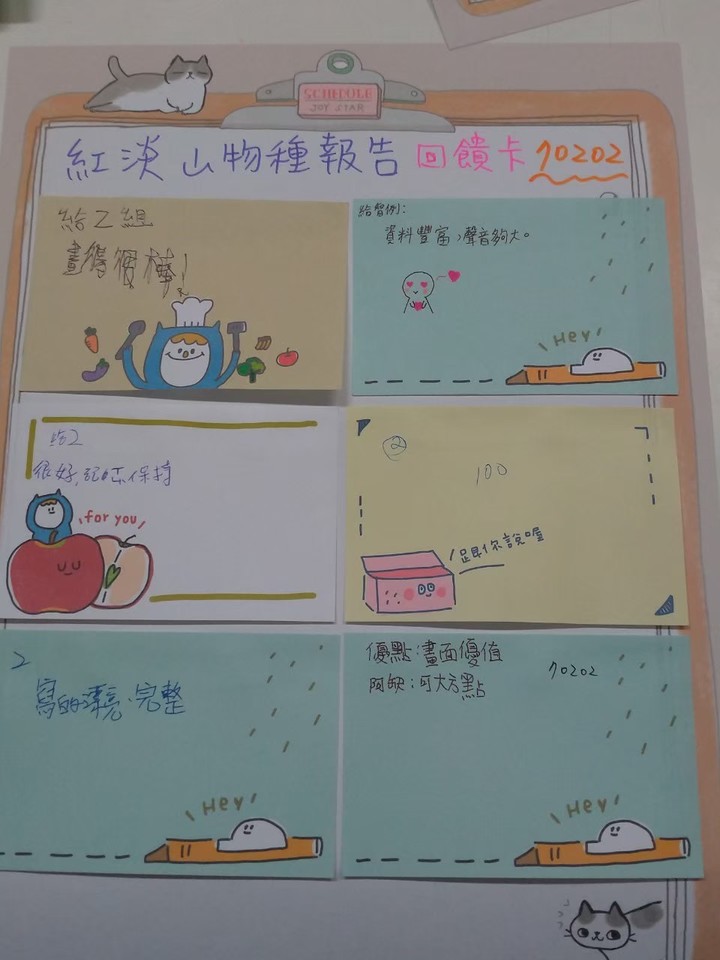 SCHEDULE
JOY STAR
紅淡山物種報告 回饋卡 70202
給2組
畫得很棒！
給聲例：
資料豐富，聲音夠大。
Hey
給2
很好，保持
for you
②
100
跟你說喔
2
寫的漂亮、完整
Hey
優點：畫面優值
70202
可大方點
Hey